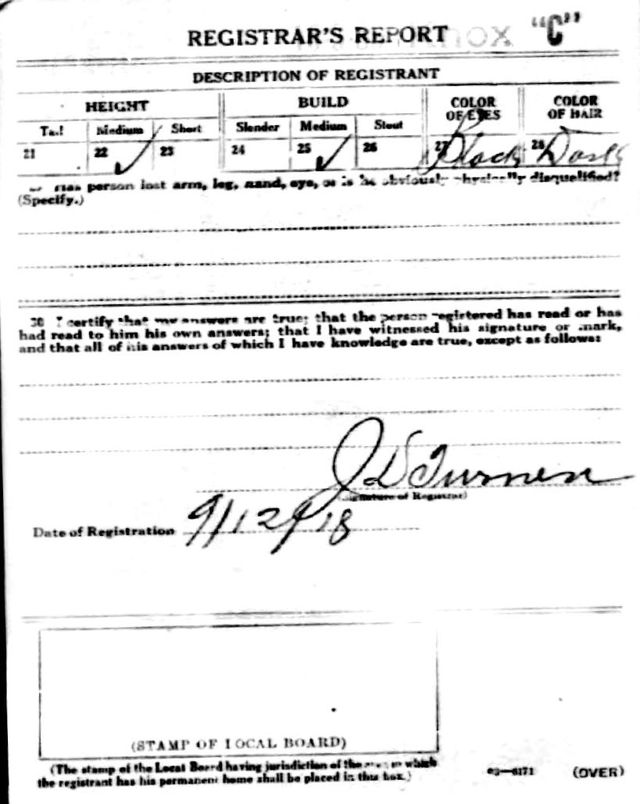 REGISTRAR'S REPORT "C"
DESCRIPTION OF REGISTRANT
HEIGHT BUILD COLOR OF EYES COLOR OF HAIR
Tall Medium Short Slender Medium Stout
21 22 ✓ 23 24 25 ✓ 26 27 Black 28 Dark
Has person lost arm, leg, hand, eye, or is he obviously physically disqualified?
(Specify.)
30 I certify that my answers are true; that the person registered has read or has
had read to him his own answers; that I have witnessed his signature or mark,
and that all of his answers of which I have knowledge are true, except as follows:
J D Turner
(Signature of Registrar)
Date of Registration 9/12/18
(STAMP OF LOCAL BOARD)
(The stamp of the Local Board having jurisdiction of the area in which
the registrant has his permanent home shall be placed in this box.)
03—6171 (OVER)